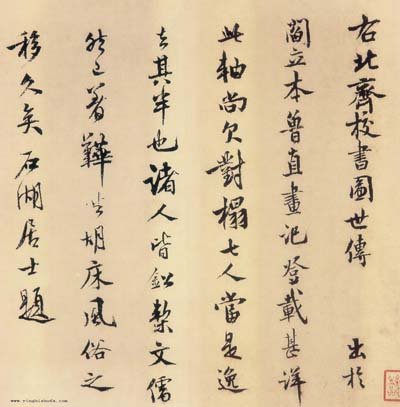 右北齊校書圖世傳 出於
閻立本魯直畫記登載甚詳
此軸尚欠對榻七人當是逸
去其半也諸人皆鉛槧文儒
然已著鞾坐胡床風俗之
移久矣石湖居士題
www.yingbishufa.com